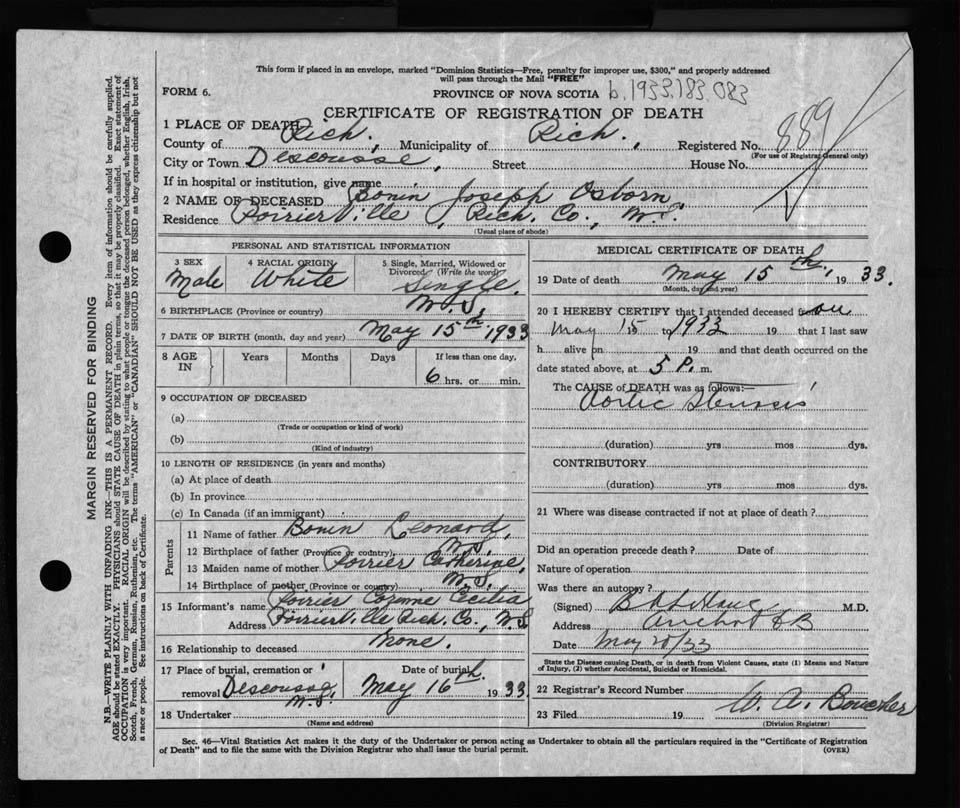 This form if placed in an envelope, marked "Dominion Statistics—Free, penalty for improper use, $300," and properly addressed
will pass through the Mail "FREE"
FORM 6.
PROVINCE OF NOVA SCOTIA b.1933.183.083
CERTIFICATE OF REGISTRATION OF DEATH
889
1 PLACE OF DEATH
County of Rich., Municipality of Rich., Registered No.
(For use of Registrar General only)
City or Town Descousse, Street House No.
If in hospital or institution, give name
2 NAME OF DECEASED Bonin Joseph Osborn,
Residence Poirierville, Rich. Co., N.S.
(Usual place of abode)
PERSONAL AND STATISTICAL INFORMATION
3 SEX 4 RACIAL ORIGIN 5 Single, Married, Widowed or
Divorced (Write the word)
Male White Single.
6 BIRTHPLACE (Province or country) N.S.
7 DATE OF BIRTH (month, day and year) May 15th, 1933
8 AGE IN Years Months Days If less than one day,
6 hrs. or min.
9 OCCUPATION OF DECEASED
(a)
(Trade or occupation or kind of work)
(b)
(Kind of industry)
10 LENGTH OF RESIDENCE (in years and months)
(a) At place of death
(b) In province
(c) In Canada (if an immigrant)
Parents
11 Name of father Bonin Leonard,
12 Birthplace of father (Province or country) N.S.
13 Maiden name of mother Poirier Catherine,
14 Birthplace of mother (Province or country) N.S.
15 Informant's name Poirier Cecilia
Address Poirierville Rich. Co., N.S.
16 Relationship to deceased None.
17 Place of burial, cremation or Date of burial
removal Descousse, N.S. May 16th. 1933.
18 Undertaker
(Name and address)
MEDICAL CERTIFICATE OF DEATH
19 Date of death May 15th, 1933.
(Month, day and year)
20 I HEREBY CERTIFY that I attended deceased from on
May 15 to 1933 19 that I last saw
h alive on 19 and that death occurred on the
date stated above, at 5 P. m.
The CAUSE of DEATH was as follows:—
Aortic Stenosis
(duration) yrs mos dys.
CONTRIBUTORY
(duration) yrs mos dys.
21 Where was disease contracted if not at place of death?
Did an operation precede death? Date of
Nature of operation
Was there an autopsy?
(Signed) M.D.
Address
Date May 20/33
State the Disease causing Death, or in death from Violent Causes, state (1) Means and Nature
of Injury, (2) whether Accidental, Suicidal or Homicidal.
22 Registrar's Record Number
23 Filed 19 W. A. Boucher
(Division Registrar)
Sec. 46—Vital Statistics Act makes it the duty of the Undertaker or person acting as Undertaker to obtain all the particulars required in the "Certificate of Registration
of Death" and to file the same with the Division Registrar who shall issue the burial permit. (OVER)
MARGIN RESERVED FOR BINDING
N.B.—WRITE PLAINLY WITH UNFADING INK—THIS IS A PERMANENT RECORD. Every item of information should be carefully supplied.
AGE should be stated EXACTLY. PHYSICIANS should STATE CAUSE OF DEATH in plain terms, so that it may be properly classified. Exact statement of
OCCUPATION is very important. RACIAL ORIGIN will be described by stating to what people or tongue the deceased person belonged, whether English, Irish,
Scotch, French, German, Russian, Ruthenian, etc. The terms "AMERICAN" or "CANADIAN" SHOULD NOT BE USED as they express citizenship but not
a race or people. See instructions on back of Certificate.